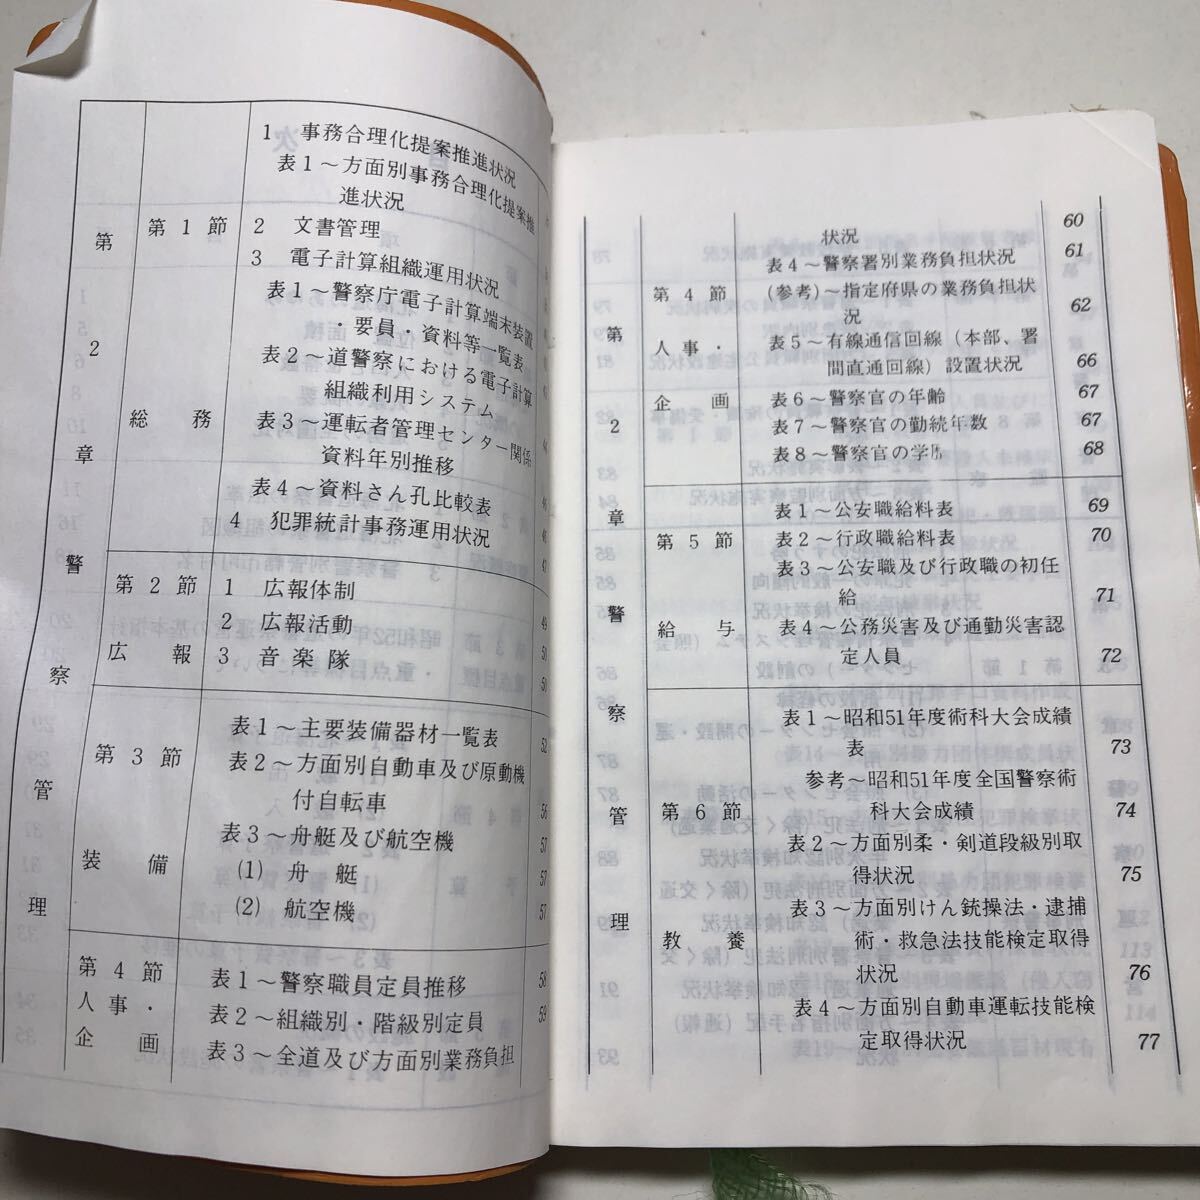 第2章 警察管理
第1節
総務
1 事務合理化提案推進状況
表1～方面別事務合理化提案推
進状況
2 文書管理
3 電子計算組織運用状況
表1～警察庁電子計算端末装置
・要員・資料等一覧表
表2～道警察における電子計算
組織利用システム
表3～運転者管理センター関係
資料年別推移 44
表4～資料さん孔比較表 46
4 犯罪統計事務運用状況 46
47
第2節
広報
1 広報体制 49
2 広報活動 50
3 音楽隊 50
第3節
装備
表1～主要装備器材一覧表 52
表2～方面別自動車及び原動機
付自転車 56
表3～舟艇及び航空機 57
(1) 舟艇 57
(2) 航空機 57
第4節
人事・
企画
表1～警察職員定員推移 58
表2～組織別・階級別定員 59
表3～全道及び方面別業務負担
第2章 警察管理
第4節
人事・
企画
状況 60
表4～警察署別業務負担状況 61
(参考)～指定府県の業務負担状
況 62
表5～有線通信回線（本部、署
間直通回線）設置状況 66
表6～警察官の年齢 67
表7～警察官の勤続年数 67
表8～警察官の学歴 68
第5節
給与
表1～公安職給料表 69
表2～行政職給料表 70
表3～公安職及び行政職の初任
給 71
表4～公務災害及び通勤災害認
定人員 72
第6節
教養
表1～昭和51年度術科大会成績
表 73
参考～昭和51年度全国警察術
科大会成績 74
表2～方面別柔・剣道段級別取
得状況 75
表3～方面別けん銃操法・逮捕
術・救急法技能検定取得
状況 76
表4～方面別自動車運転技能検
定取得状況 77